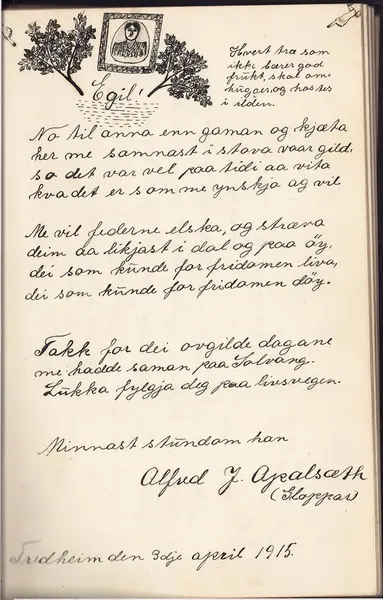 Hvert træ som
ikki bærer god
frükt, skal om-
hügges, og kastes
i ilden.
Egil!
No til anna enn gaman og kjæta
her me samnast i stova vaar gild,
so det var vel paa tidi aa vita
kva det er som me ynskja og vil
Me vil federne elska, og stræva
deim aa likjast i dal og paa öy,
dei som künde for fridomen liva,
dei som künde for fridomen döy.
Takk for dei ovgilde dagane
me hadde saman paa Solvang.
Lükka fylgja deg paa livsvegen.
Minnast stündom han
Alfred J. Apalsæth
(Gloppar)
Fredheim den 3dje april 1915.